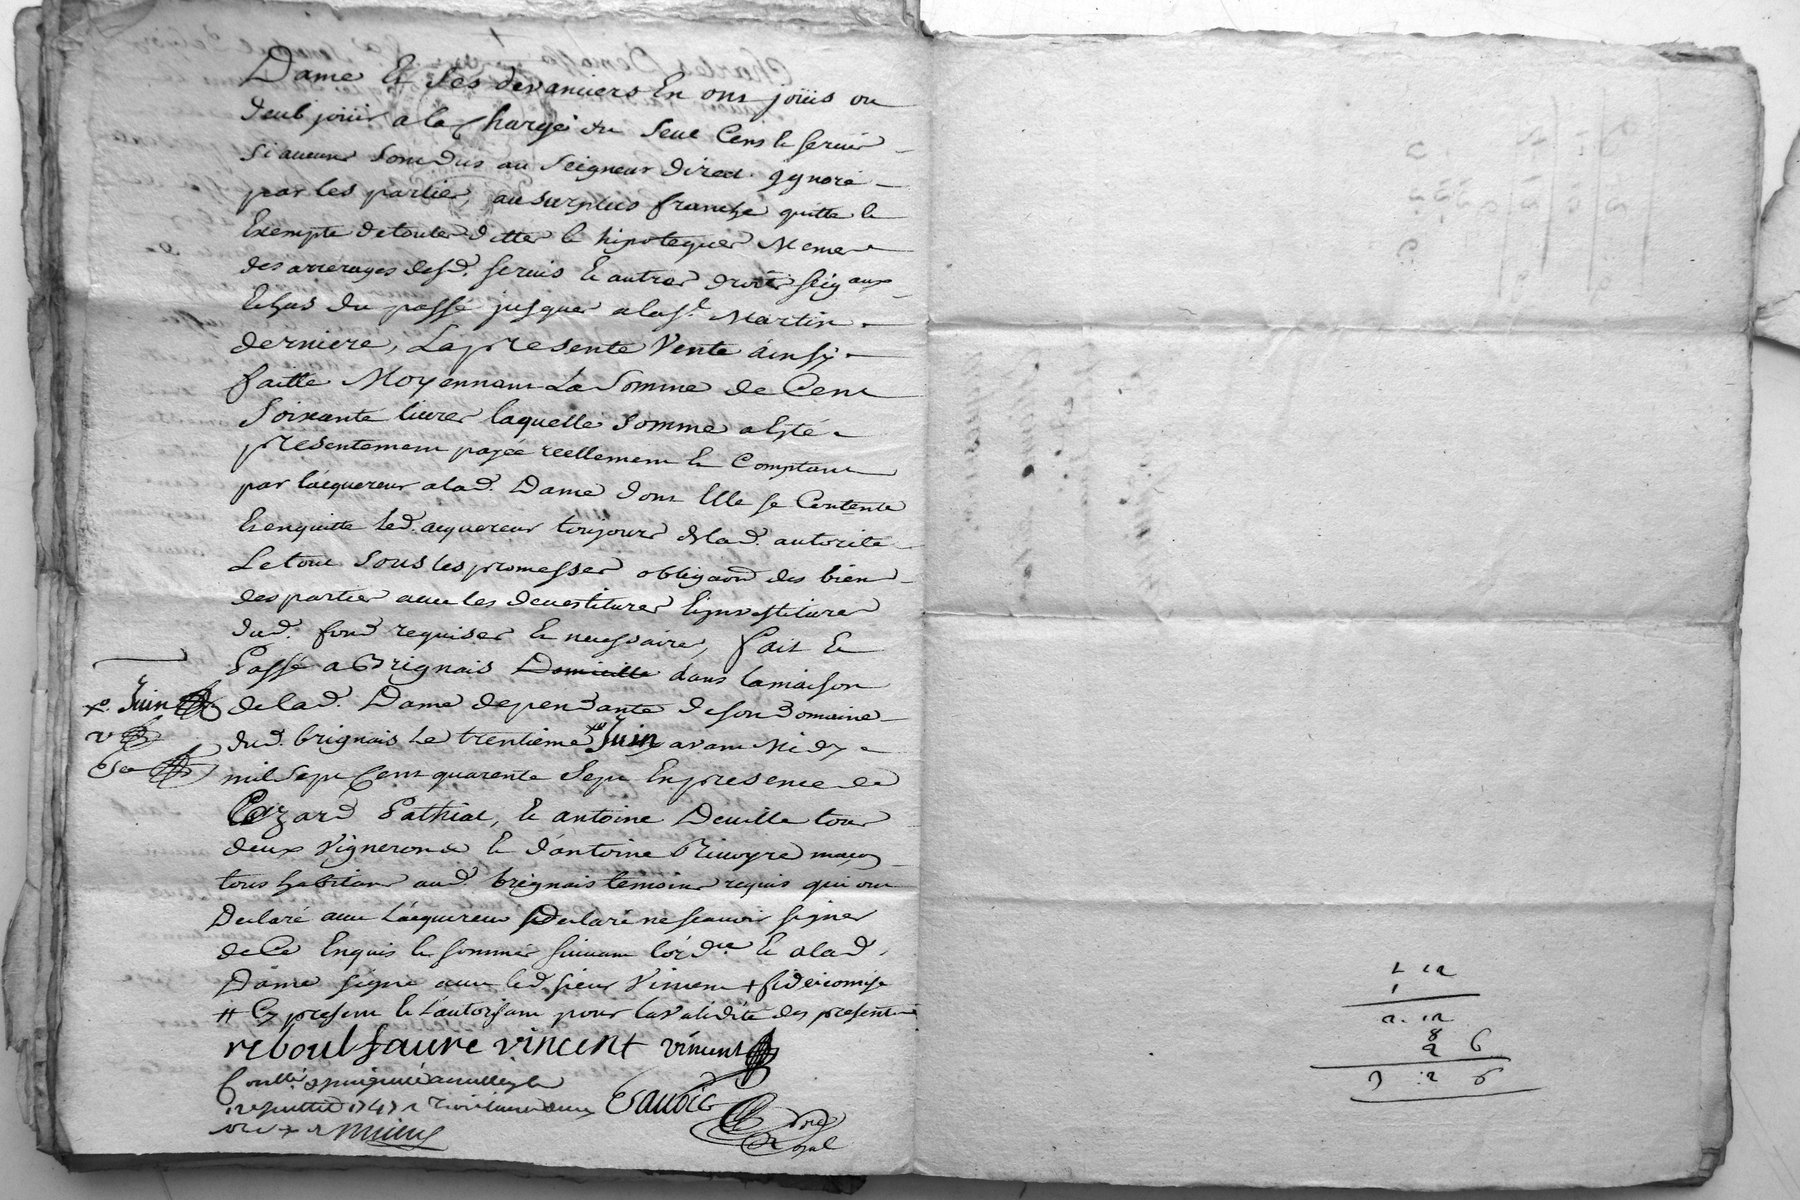 Dame & ses devanciers En ont joüis ou
deub joüir a la Charge du seul Cens & servis
si aucuns sont dus au seigneur direct ignoré
par les parties, au surplus franche quitte &
Exempte de toutes dettes & hipoteques Meme
des arrerages desd. servis & autres droits seig.aux
Echus du passé jusques a la st. Martin
derniere, La presente Vente ainsy
faitte Moyennant La somme de Cent
Soixante livres laquelle somme a Esté
presentement payée reellement & Comptant
par l'acquereur a lad. Dame dont Elle se Contente
& en quitte led. acquereur toujours de lad. autorité
Le tout sous les promesses obligaon des biens
des parties avec les devestitures & investitures
dud. fond requises & necessaire, fait &
Passé a Brignais Domicille dans la maison
de lad. Dame dependante de son domaine
dud. brignais Le trentieme Juin avant Midy
mil Sept Cent quarente Sept En presence de
Lazard Pathiat, & antoine Deville tous
deux Vignerons & d'antoine Rivoyre maçon
tous habitans aud. brignais temoins requis qui ont
Declaré avec L'acquereur Declaré ne scavoir signer
de Ce Enquis & sommés suivant l'ord.ce & a lad.
Dame signé avec led. sieur Vincent + fideicomise
# Cy present & L'autorisant pour la validité des presentes
x. Juin
reboul faure vincent vincent
Con.llé
juillet 1747
Gaudin
no.re
Royal
1 12
1
2. 12
8
2 6
3 12 6